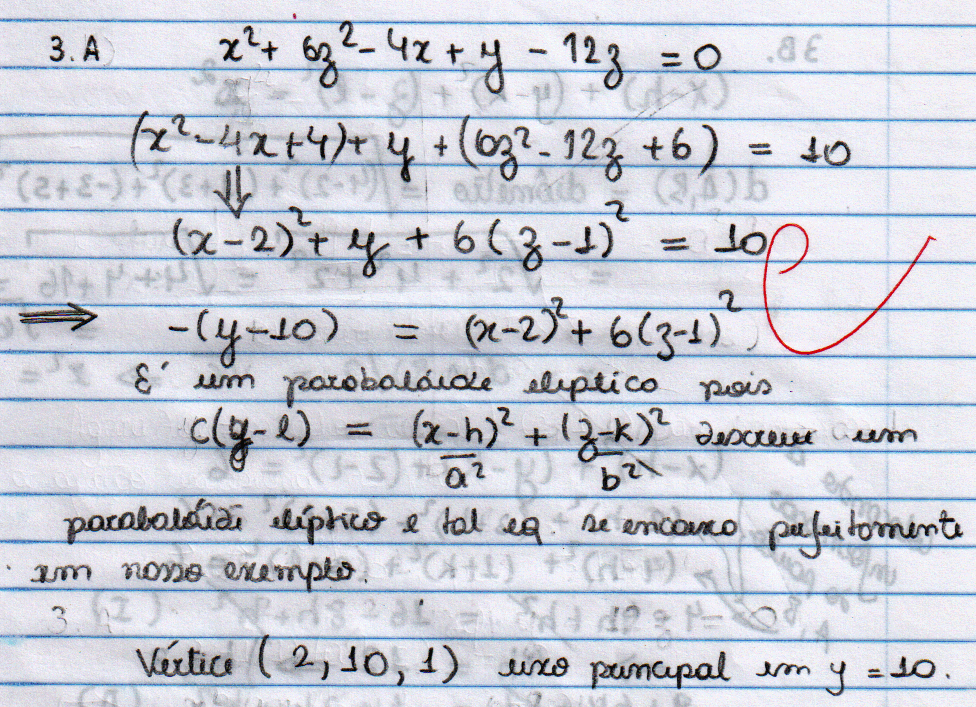 3.A) x² + 6z² - 4x + y - 12z = 0
(x² - 4x + 4) + y + (6z² - 12z + 6) = 10
⇓
(x - 2)² + y + 6(z - 1)² = 10
⟹ -(y - 10) = (x - 2)² + 6(z - 1)²
É um parabolóide elíptico pois:
c(y - l) = (x - h)²/a² + (z - k)²/b² descreve um
parabolóide elíptico e tal eq. se encaixa perfeitamente
em nosso exemplo.
Vértice (2, 10, 1) eixo principal em y = 10.